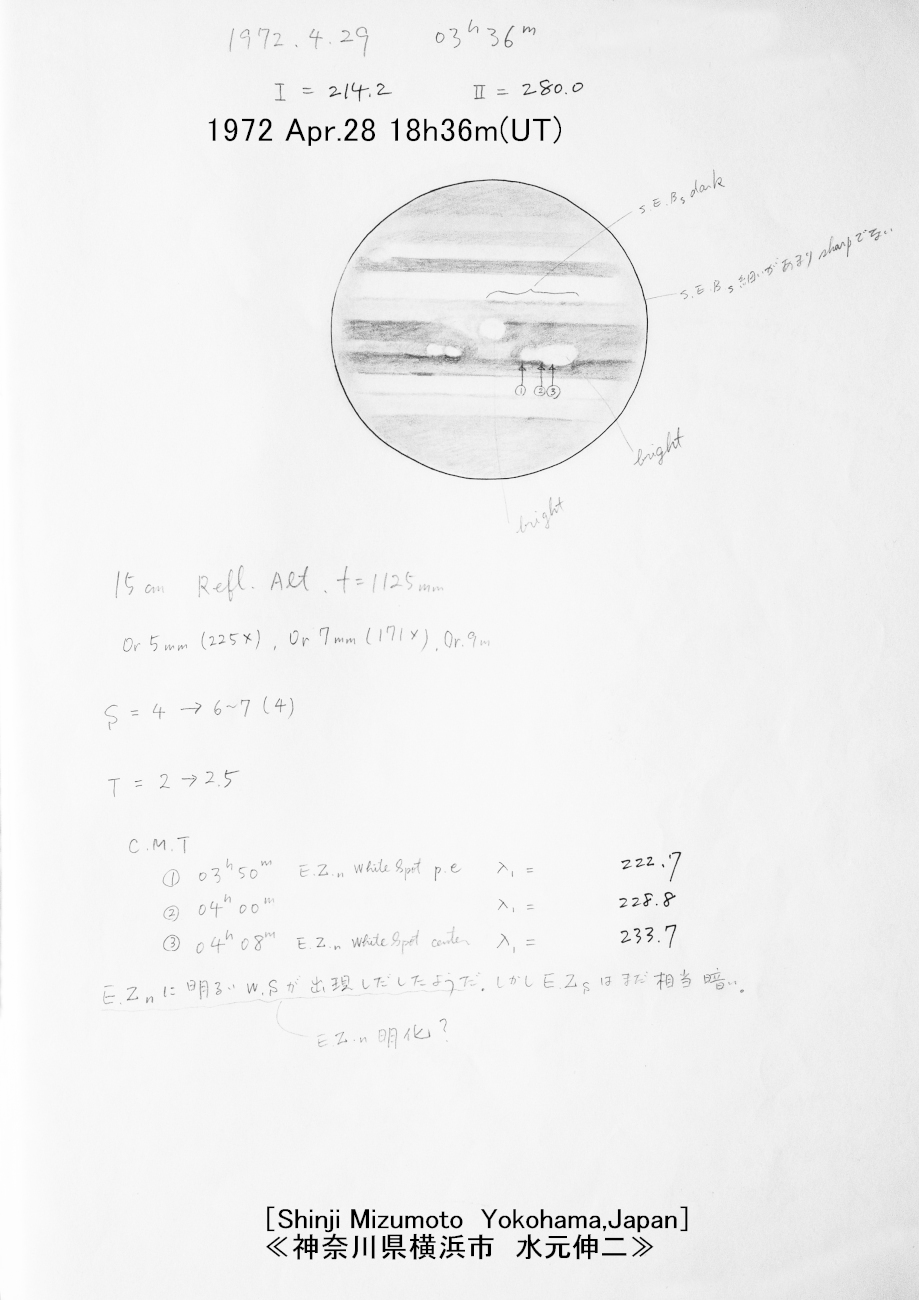 1972.4.29 03h36m
I = 214.2 II = 280.0
1972 Apr.28 18h36m(UT)
S.E.Bs dark
S.E.Bs 細いがあまり sharp でない
① ② ③
bright
bright
15cm Refl. Alt. f=1125mm
Or 5mm (225×), Or 7mm (171×), Or.9m
S = 4 → 6~7 (4)
T = 2 → 2.5
C.M.T
① 03h50m E.Z.n White Spot p.e λ₁ = 222.7
② 04h00m λ₁ = 228.8
③ 04h08m E.Z.n White Spot center λ₁ = 233.7
E.Zn に明るい W.S が出現しだしたようだ。しかし E Zs はまだ相当暗い。
E Z.n 明化?
[Shinji Mizumoto Yokohama,Japan]
≪神奈川県横浜市 水元伸二≫